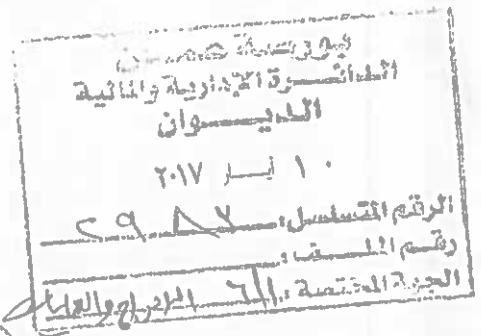 بورصة عمان
الدائرة الإدارية والمالية
الديوان
١٠ أيار ٢٠١٧
الرقم المتسلسل: ٢٩٨٧
رقم الملف:
الجهة المختصة: الإدراج والعمليات